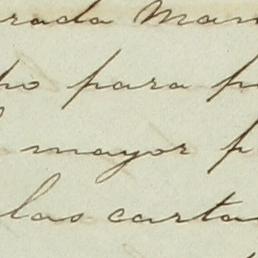 rada Mam
po para p
mayor p
las carta